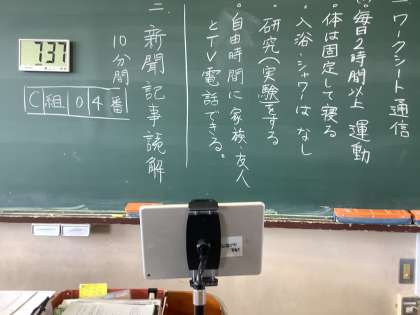 一.ワークシート通信
・毎日2時間以上 運動
・体は固定して寝る
・入浴・シャワーはなし
・研究(実験)をする
・自由時間に家族・友人
とTV電話できる。
二.新聞記事読解
10分間
C組04番
737